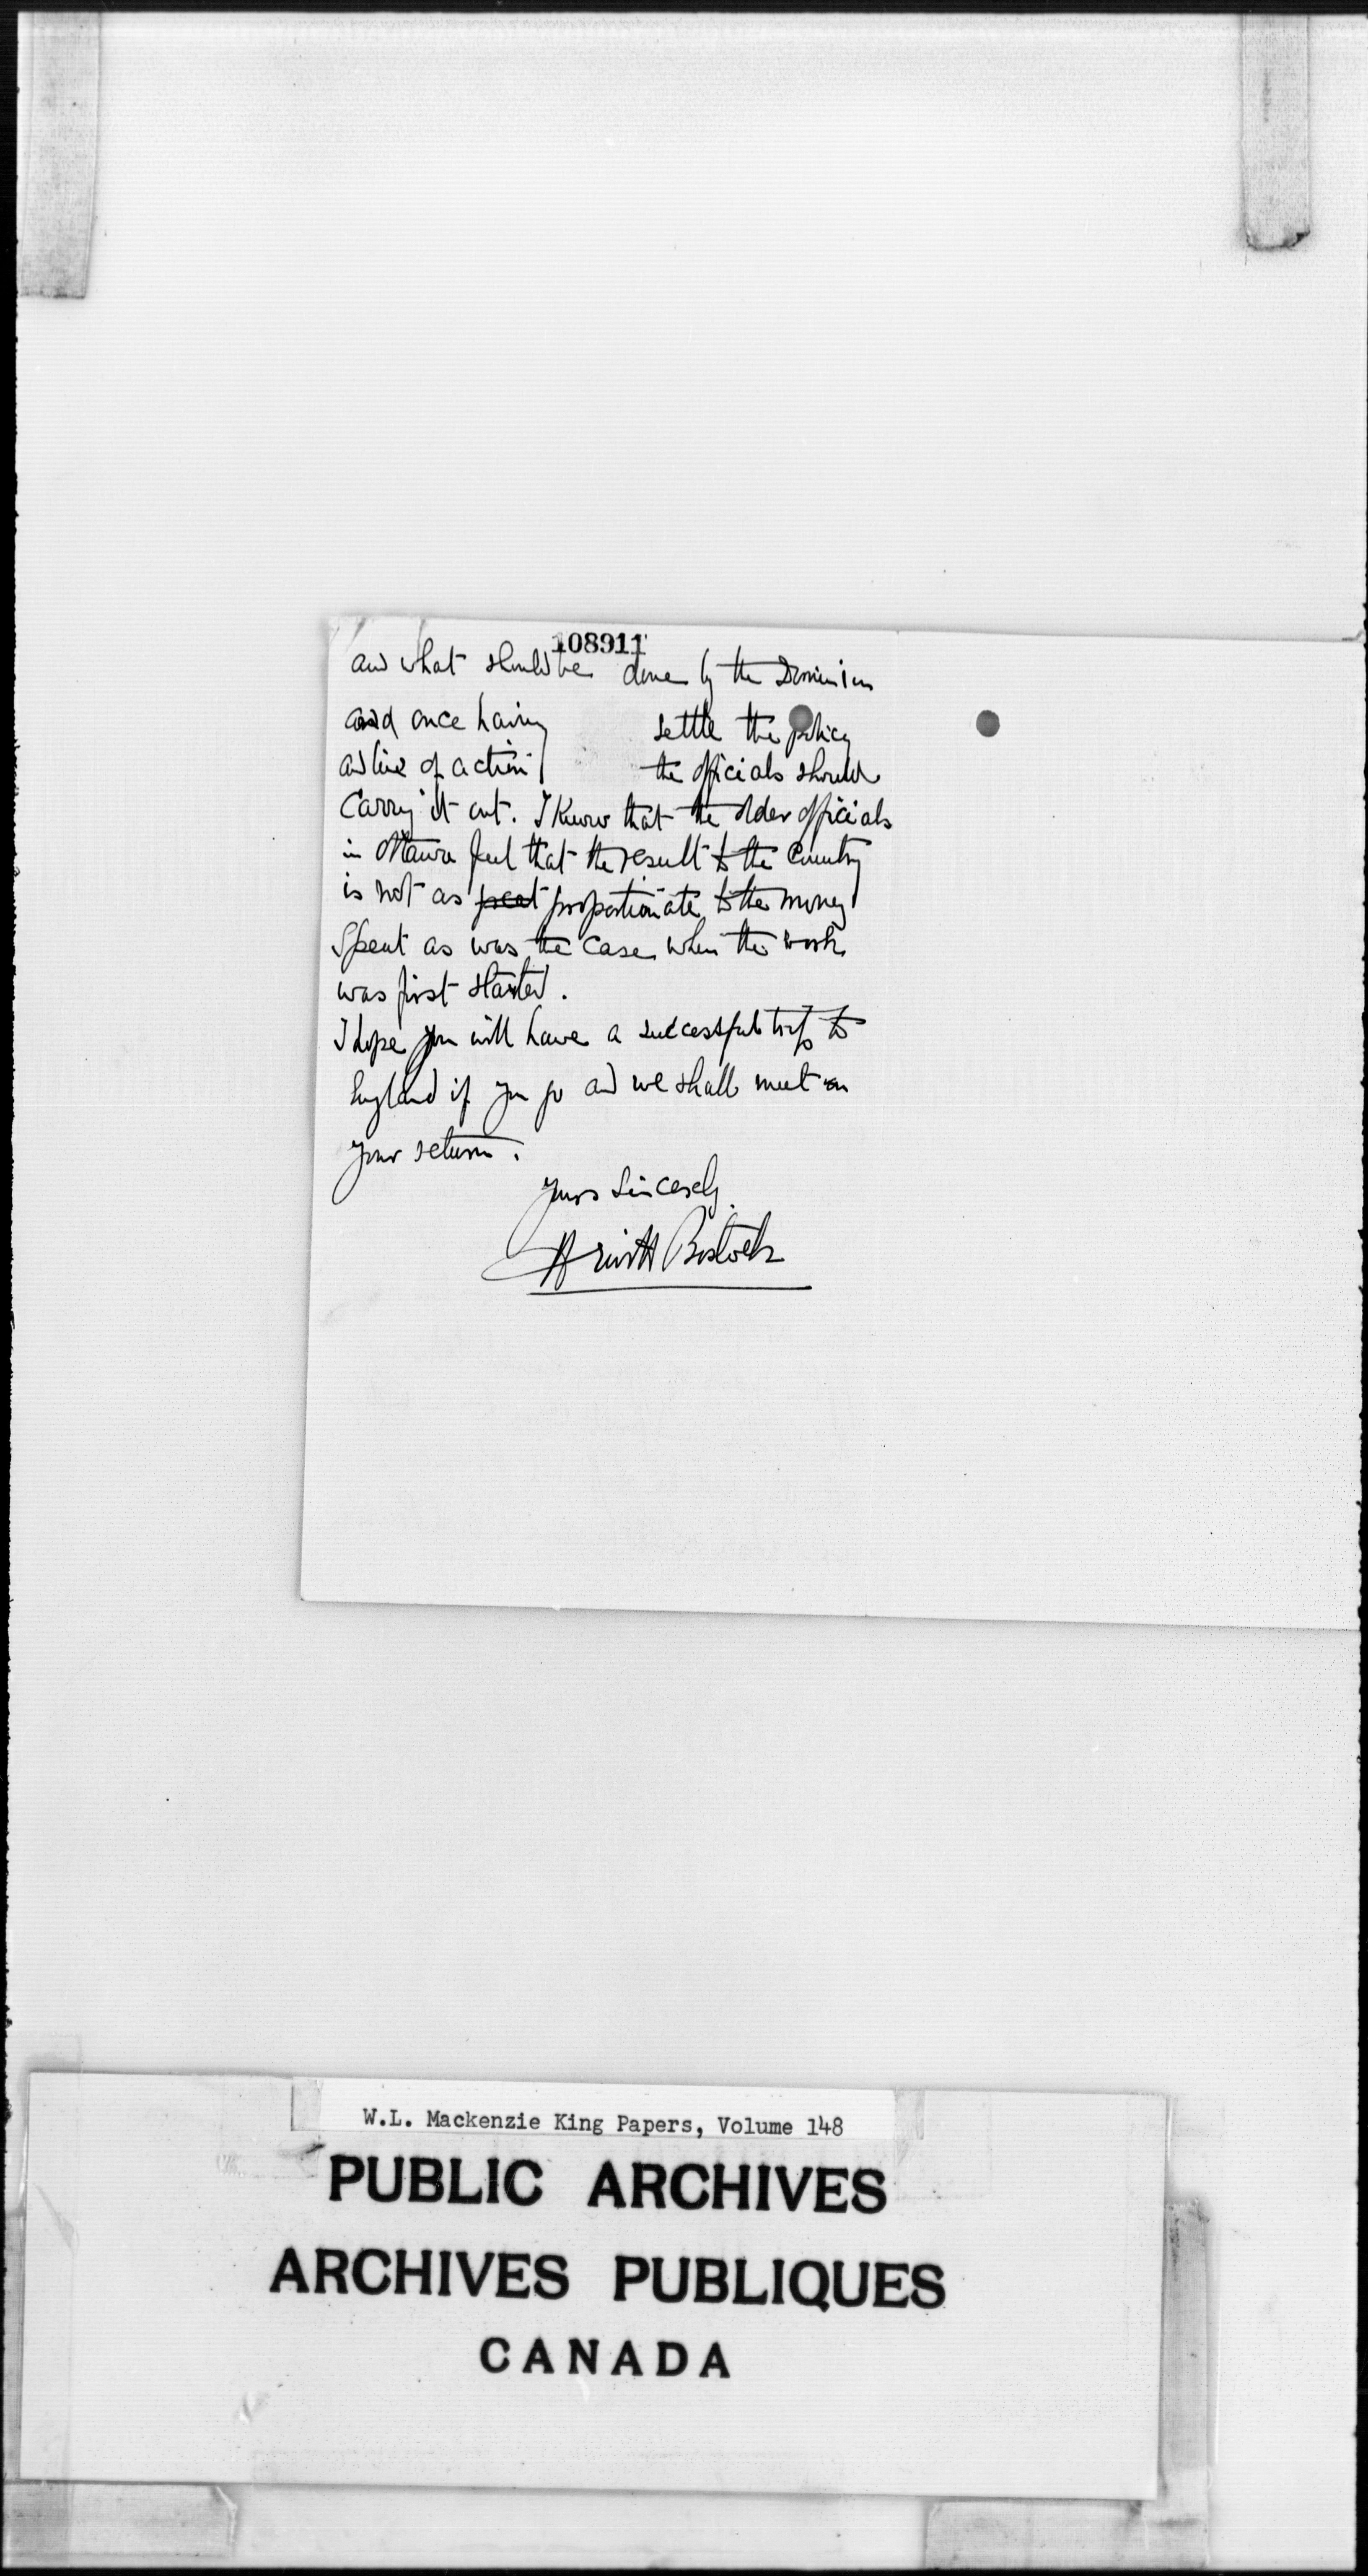 108911
and what should be done by the Dominion
and once having settle the policy
and line of action the officials should
carry it out. I know that the older officials
in Ottawa feel that the result to the Country
is not as great proportionate to the money
Spent as was the case when the work
was first started.
I hope you will have a successful trip to
England if you go and we shall meet on
your return.
Yours Sincerely.
Hewitt Bostock
W.L. Mackenzie King Papers, Volume 148
PUBLIC ARCHIVES
ARCHIVES PUBLIQUES
CANADA